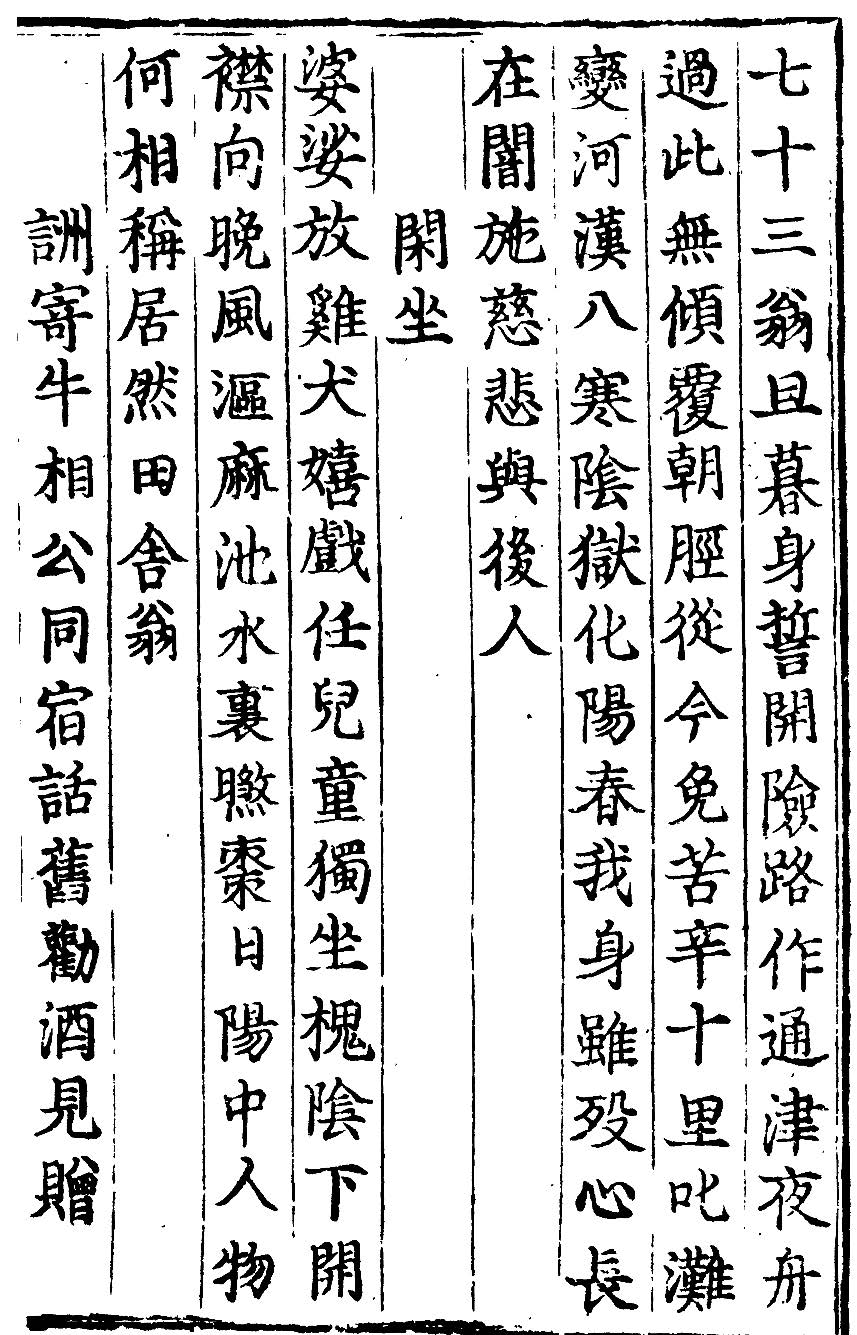 七十三翁旦暮身誓開險路作通津夜舟
過此無傾覆朝脛從今免苦辛十里叱灘
變河漢八寒陰獄化陽春我身雖歿心長
在闇施慈悲與後人
閑坐
婆娑放雞犬嬉戲任兒童獨坐槐陰下開
襟向晚風漚麻池水裏㬠棗日陽中人物
何相稱居然田舍翁
詶寄牛相公同宿話舊勸酒見贈